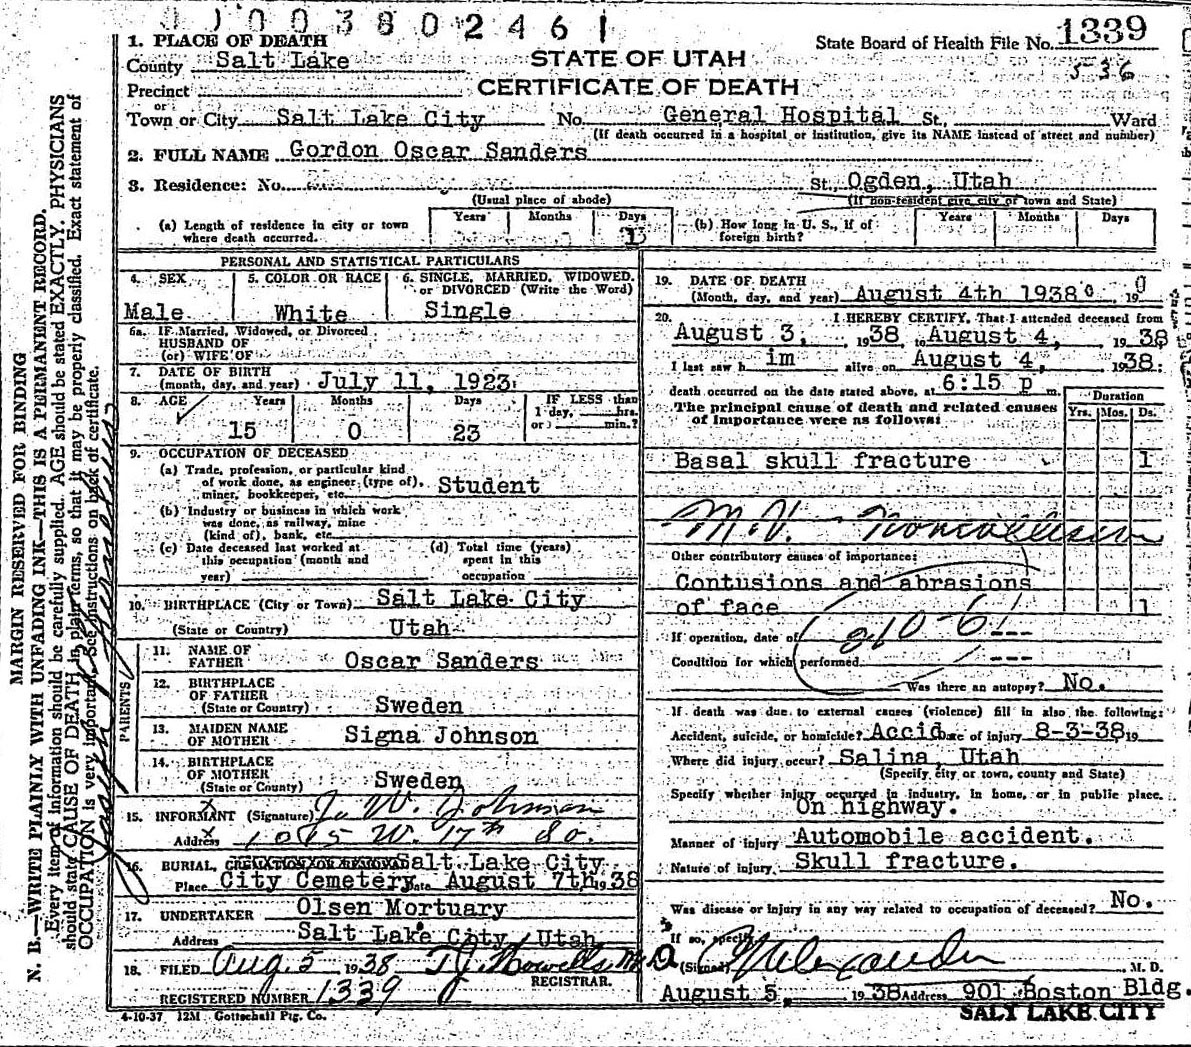 0000380246 1
1. PLACE OF DEATH
County Salt Lake
STATE OF UTAH
CERTIFICATE OF DEATH
State Board of Health File No. 1339
536
Precinct
or
Town or City Salt Lake City No. General Hospital St., Ward
(If death occurred in a hospital or institution, give its NAME instead of street and number)
2. FULL NAME Gordon Oscar Sanders
3. Residence: No. St., Ogden, Utah
(Usual place of abode) (If non-resident give city or town and State)
(a) Length of residence in city or town where death occurred. Years Months Days 1
(b) How long in U. S., if of foreign birth? Years Months Days
PERSONAL AND STATISTICAL PARTICULARS
4. SEX 5. COLOR OR RACE 6. SINGLE, MARRIED, WIDOWED, or DIVORCED (Write the Word)
Male White Single
6a. IF Married, Widowed, or Divorced
HUSBAND OF
(or) WIFE OF
7. DATE OF BIRTH
(month, day, and year) July 11, 1923
8. AGE Years Months Days IF LESS than
1 day, hrs.
or min.?
15 0 23
9. OCCUPATION OF DECEASED
(a) Trade, profession, or particular kind
of work done, as engineer (type of),
miner, bookkeeper, etc. Student
(b) Industry or business in which work
was done, as railway, mine
(kind of), bank, etc.
(c) Date deceased last worked at
this occupation (month and
year)
(d) Total time (years)
spent in this
occupation
10. BIRTHPLACE (City or Town) Salt Lake City
(State or Country) Utah
PARENTS
11. NAME OF
FATHER Oscar Sanders
12. BIRTHPLACE
OF FATHER
(State or Country) Sweden
13. MAIDEN NAME
OF MOTHER Signa Johnson
14. BIRTHPLACE
OF MOTHER
(State or Country) Sweden
15. INFORMANT (Signature) J. W. Johnson
Address 1045 W. 17th So.
16. BURIAL, CREMATION OR REMOVAL Salt Lake City
Place City Cemetery Date August 7th 1938
17. UNDERTAKER Olsen Mortuary
Address Salt Lake City, Utah
18. FILED Aug. 5 1938 T J Howells M.D.
REGISTRAR.
REGISTERED NUMBER 1339
4-10-37 12M Gottschall Ptg. Co.
19. DATE OF DEATH
(Month, day, and year) August 4th 1938 19
20. I HEREBY CERTIFY, That I attended deceased from
August 3, 1938, to August 4, 1938
I last saw h im alive on August 4, 1938.
death occurred on the date stated above, at 6:15 p m.
The principal cause of death and related causes
of importance were as follows:
Duration
Yrs. Mos. Ds.
Basal skull fracture 1
M.V. Noncollision
Other contributory causes of importance:
Contusions and abrasions
of face 1
210-6
If operation, date of ---
Condition for which performed ---
Was there an autopsy? No.
If death was due to external causes (violence) fill in also the following:
Accident, suicide, or homicide? Accid. Date of injury 8-3-38 19
Where did injury occur? Salina, Utah
(Specify city or town, county and State)
Specify whether injury occurred in industry, in home, or in public place.
On highway.
Manner of injury Automobile accident.
Nature of injury Skull fracture.
Was disease or injury in any way related to occupation of deceased? No.
If so, specify
(Signed) M. D.
August 5, 1938 Address 901 Boston Bldg.
SALT LAKE CITY
MARGIN RESERVED FOR BINDING
N. B.—WRITE PLAINLY WITH UNFADING INK—THIS IS A PERMANENT RECORD.
Every item of information should be carefully supplied. AGE should be stated EXACTLY. PHYSICIANS
should state CAUSE OF DEATH in plain terms, so that it may be properly classified. Exact statement of
OCCUPATION is very important. See instructions on back of certificate.